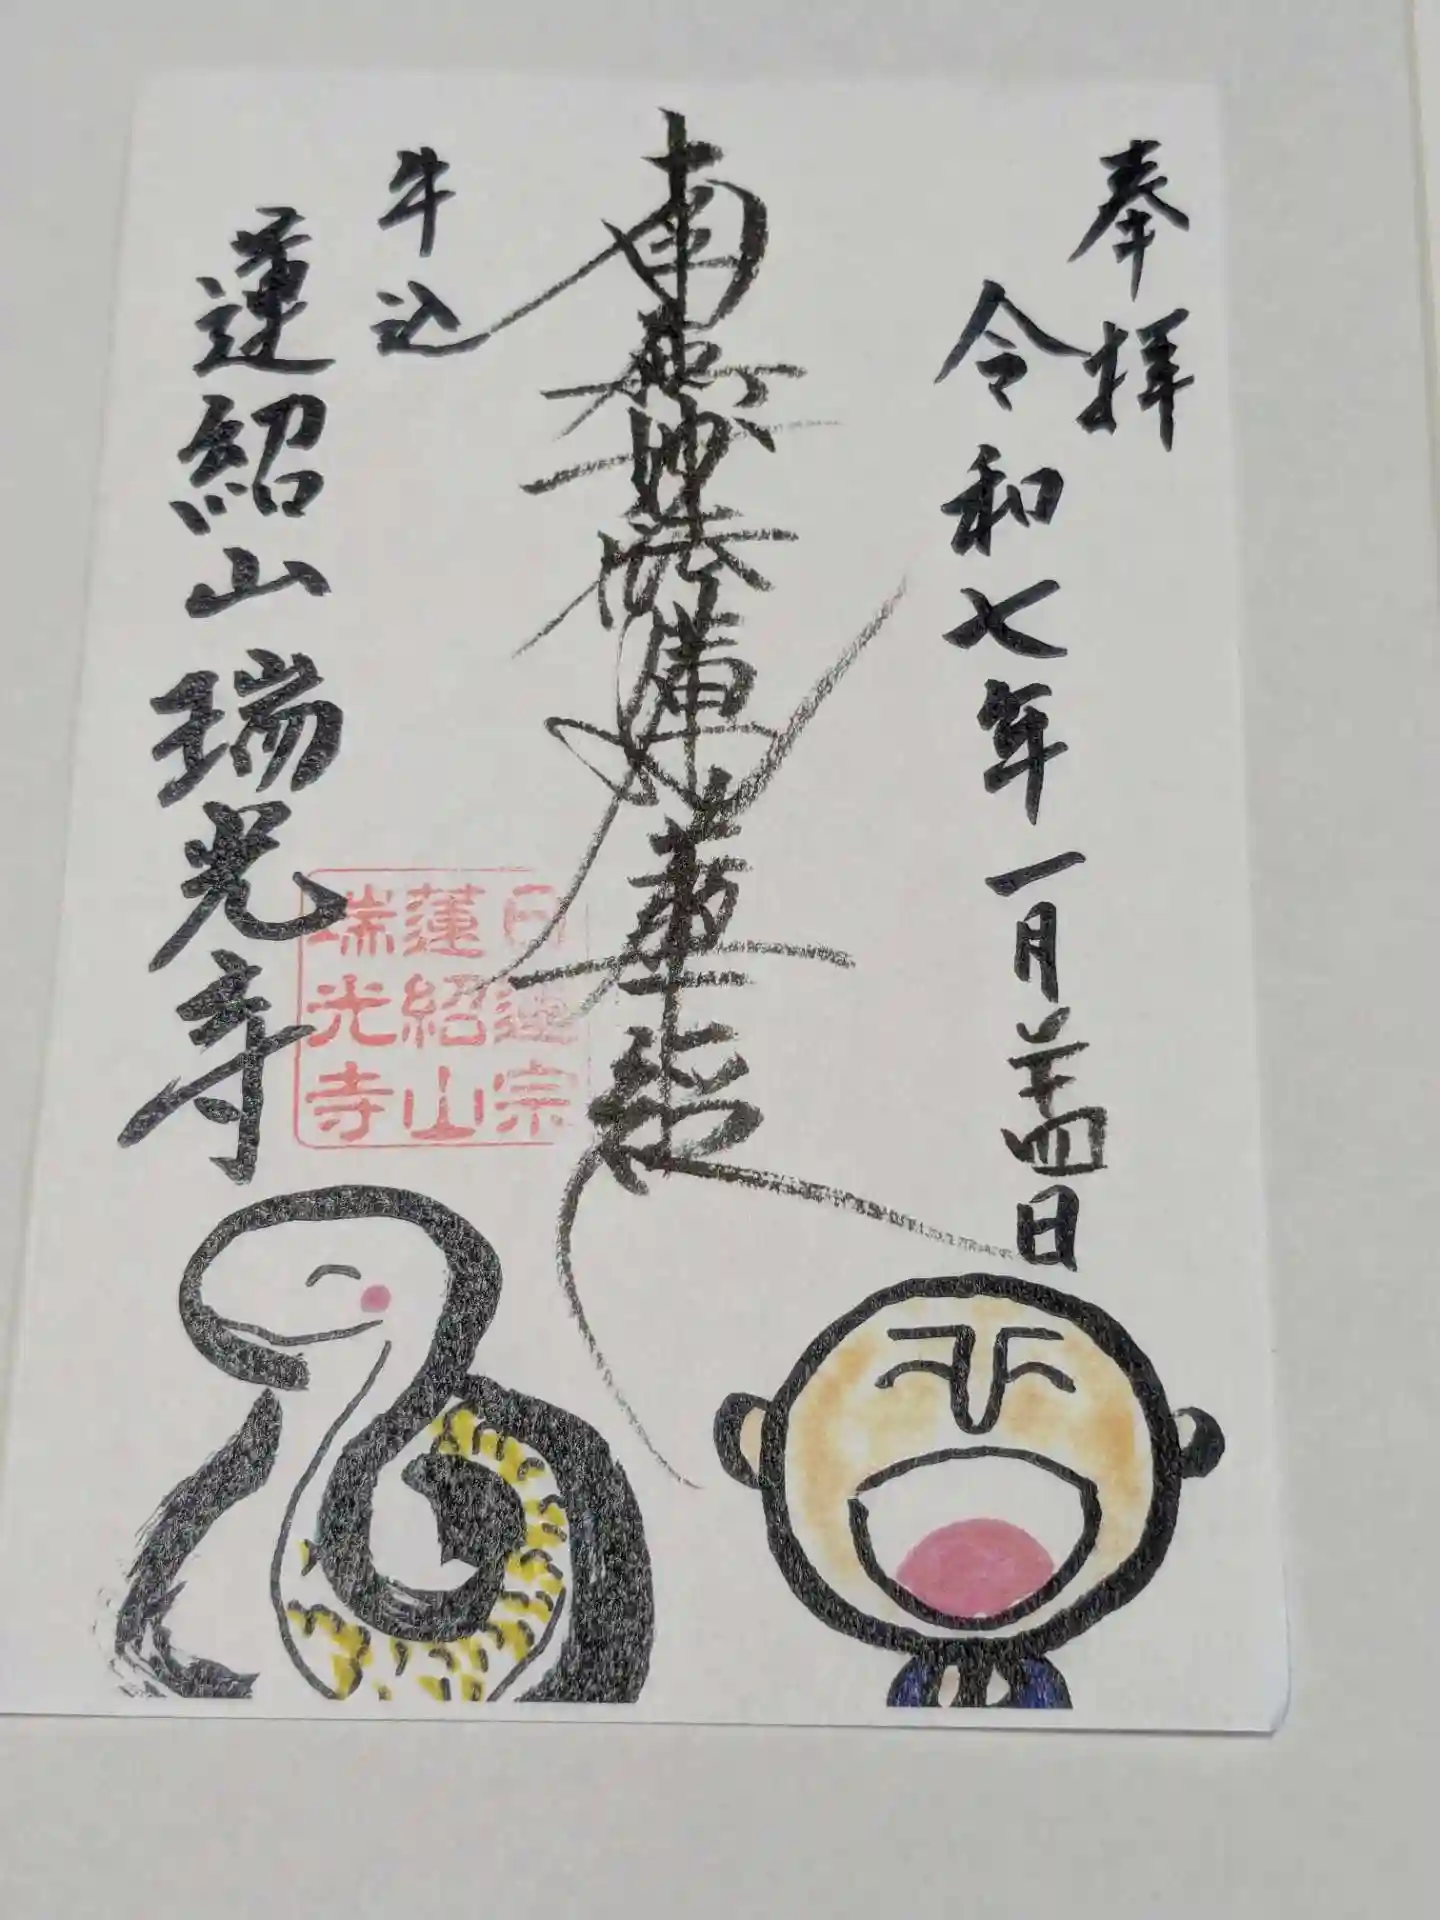 奉拝
令和七年一月廿四日
南無妙法蓮華経
牛込
蓮紹山瑞光寺
日蓮宗
蓮紹山
瑞光寺